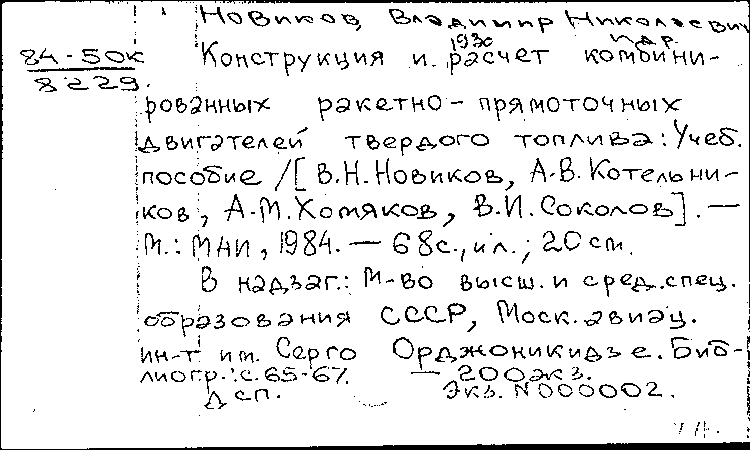 Новиков, Владимир Николаевич
1930 и др.
84-50к
8229.
Конструкция и расчет комбини-
рованных ракетно-прямоточных
двигателей твердого топлива: Учеб.
пособие /[В.Н.Новиков, А.В.Котельни-
ков, А.М.Хомяков, В.И.Соколов]. —
М.: МАИ, 1984. — 68с., ил.; 20см.
В надзаг.: М-во высш. и сред. спец.
образования СССР, Моск. авиац.
ин-т им. Серго Орджоникидзе. Биб-
лиогр.: с. 65-67. — 200экз.
ДСП. Экз. N000002.